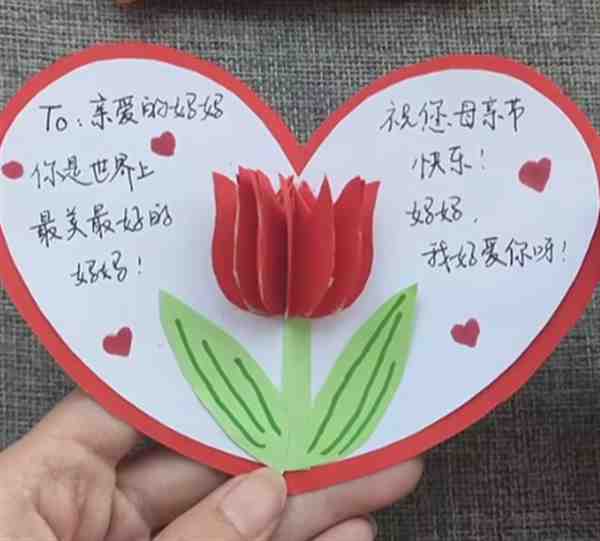 To: 亲爱的妈妈
你是世界上
最美最好的
妈妈!
祝您母亲节
快乐!
妈妈,
我好爱你呀!